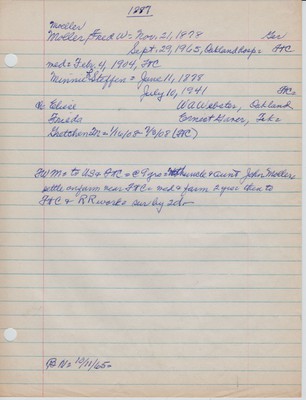 1887
Moeller
Moller, Fred W = Nov. 21, 1878 Ger
Sept. 29, 1965, Oakland hosp = FC
md = Feb. 4, 1904, FC
Minnie Steffen = June 11, 1878
July 10, 1941 FC=
Ch: Elsie W.A. Webster, Oakland
Freda Ernest
Gretchen M = 1/16/08 (FC)
FWM = to US & FC = @ 9 yrs = uncle & aunt John Moeller
settle on farm near FC = md & farm 2 yrs then to
FC & RR work = sur by 2d
N = 10/11/65 =